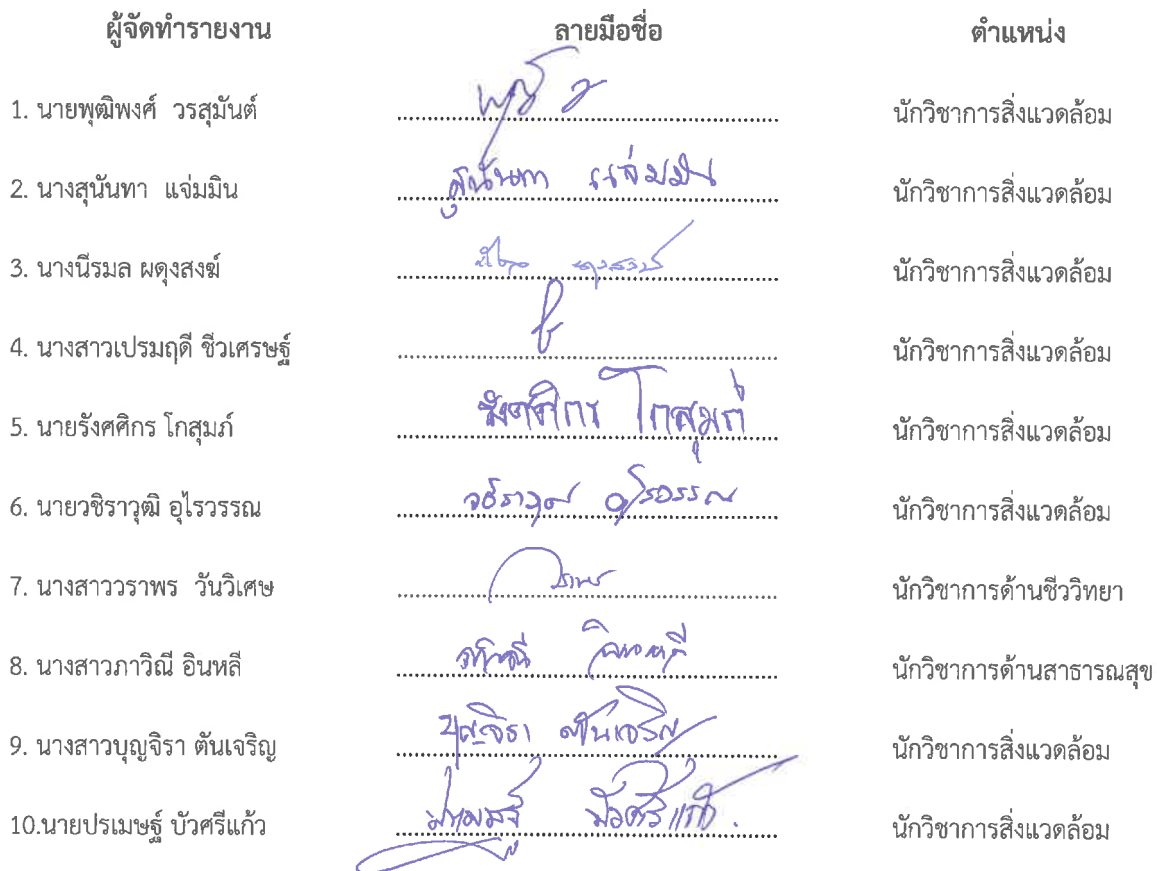 ผู้จัดทำรายงาน ลายมือชื่อ ตำแหน่ง
1. นายพุฒิพงศ์ วรสุมันต์ นักวิชาการสิ่งแวดล้อม
2. นางสุนันทา แจ่มมิน สุนันทา แจ่มมิน นักวิชาการสิ่งแวดล้อม
3. นางนีรมล ผดุงสงฆ์ นักวิชาการสิ่งแวดล้อม
4. นางสาวเปรมฤดี ชีวเศรษฐ์ นักวิชาการสิ่งแวดล้อม
5. นายรังศศิกร โกสุมภ์ รังศศิกร โกสุมภ์ นักวิชาการสิ่งแวดล้อม
6. นายวชิราวุฒิ อุไรวรรณ วชิราวุฒิ อุไรวรรณ นักวิชาการสิ่งแวดล้อม
7. นางสาววราพร วันวิเศษ นักวิชาการด้านชีววิทยา
8. นางสาวภาวิณี อินหลี นักวิชาการด้านสาธารณสุข
9. นางสาวบุญจิรา ตันเจริญ บุญจิรา ตันเจริญ นักวิชาการสิ่งแวดล้อม
10.นายปรเมษฐ์ บัวศรีแก้ว ปรเมษฐ์ บัวศรีแก้ว นักวิชาการสิ่งแวดล้อม